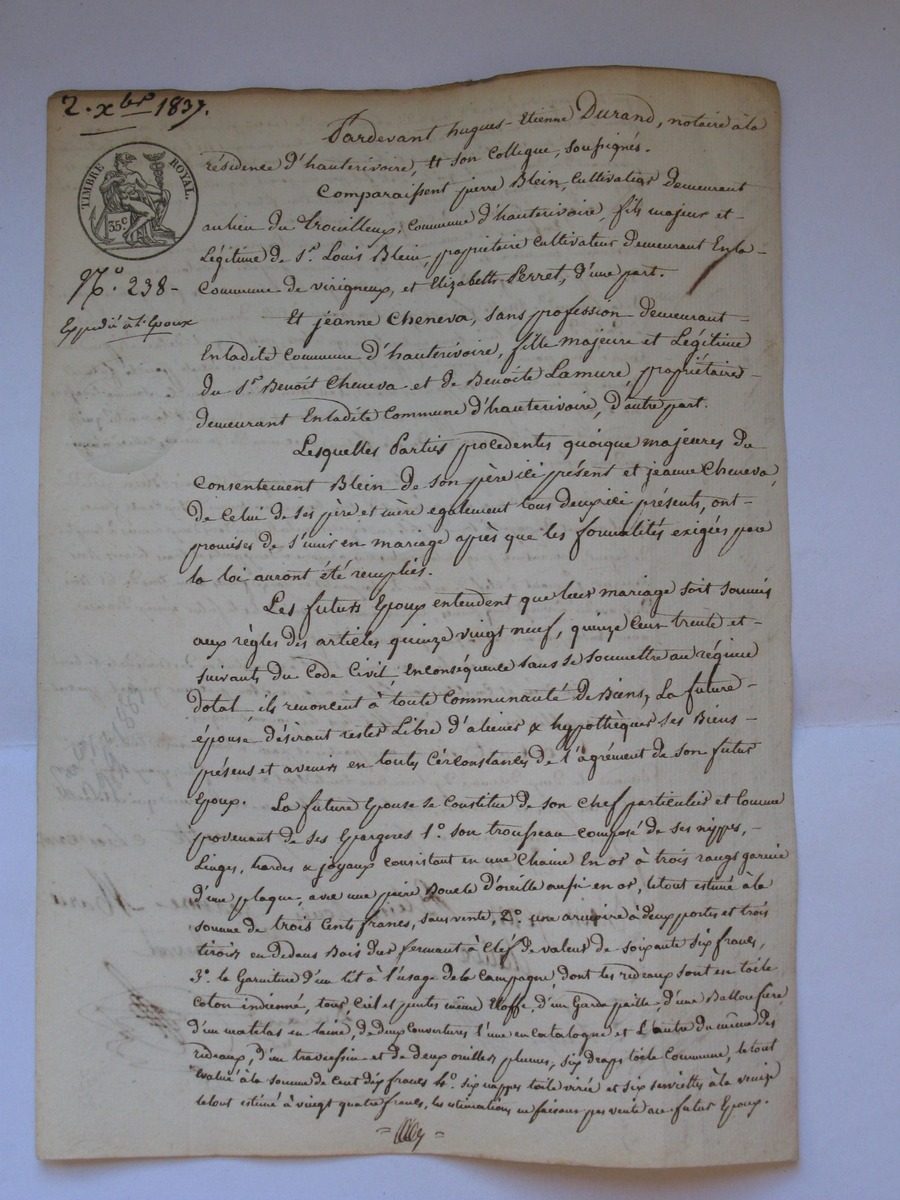 2. xbre 1837.
TIMBRE ROYAL.
35c
No. 238-
Expédié à l'Epoux
Pardevant hugues-Etienne Durand, notaire à la
résidence d'hauterivoire, et son collègue, soussignés.
Comparaissent pierre Blein, cultivateur demeurant
au lieu du trouilleux, commune d'hauterivoire, fils majeur et
Légitime de Sr. Louis Blein, propriétaire cultivateur demeurant En la
commune de virigneux, et Elizabeth Perret, d'une part.
Et jeanne Cheneva, sans profession demeurant
En ladite commune d'hauterivoire, fille majeure et Légitime
du Sr. Benoit Cheneva et de Benoite Lamure, propriétaires
demeurant En ladite Commune d'hauterivoire, d'autre part.
Lesquelles Parties procedentes quoique majeures du
Consentement Blein de son père ici présent et jeanne Cheneva,
de Celui de ses père et mère également tous deux ici présents, ont
promises de s'unir en mariage après que les formalités exigées par
la loi auront été remplies.
Les futurs Epoux entendent que leur mariage soit soumis
aux règles des articles quinze vingt neuf, quinze cent trente et
suivants du Code Civil, En conséquence sans se soumettre au régime
dotal ils renoncent à toute Communauté de Biens, La future
épouse désirant rester Libre d'aliener & hypothèquer ses Biens
présens et avenirs en toutes Circonstances de l'agrément de son futur
Epoux. La future Epouse se Constitue de son Chef particulier et comme
provenant de ses Epargnes 1o. son trousseau composé de ses nippes,
Linges, hardes & joyaux consistant en une Chaine En or à trois rangs garnie
d'une plaque, avec une paire Boucle d'oreille aussi en or, le tout estimé à la
somme de trois Cents francs, sans vente, 2o. une armoire à deux portes et trois
tiroirs en dedans Bois dur fermant à Clef de valeur de soixante six francs,
3o. la Garniture d'un lit à l'usage de la Campagne, dont les rideaux sont en toile
Coton indienné, tour, Ciel et pentes même Etoffe, d'un Garde paille, d'une Balloufière
d'un matelas en laine, de deux Couvertures l'une en catalogne et L'autre du même des
rideaux, d'un traversin et de deux orillers plumes, six draps toile Commune, le tout
évalué à la somme de Cent dix francs 4o. six nappes toile virée et six serviettes à la venise
le tout estimé à vingt quatre francs, les estimations ne faisant pas vente au futur Epoux.